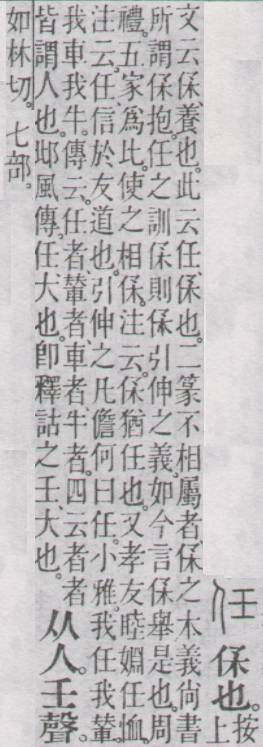 任 保也。按上
文云保、養也。此云任、保也。二篆不相屬者、保之本義、尙書
所謂保抱。任之訓保、則保引伸之義。如今言保舉是也。周
禮。五家爲比。使之相保。注云。保猶任也。又孝友睦婣任恤。
注云。任、信於友道也。引伸之凡儋何曰任。小雅。我任我輦。
我車我牛。傳云。任者、輦者、車者、牛者。四云者者
皆謂人也。邶風傳。任、大也。卽釋詁之壬、大也。
从人。壬聲。
如林切。七部。